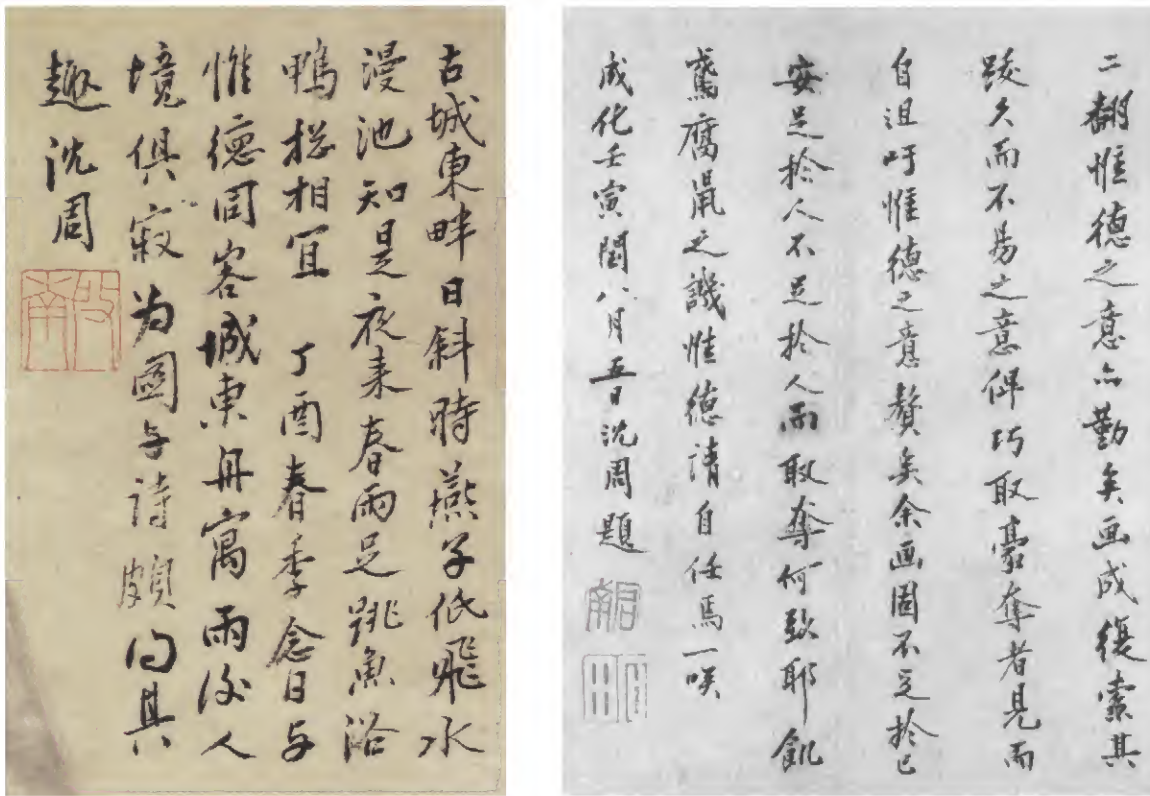 古城東畔日斜時燕子低飛水
漫池知是夜来春雨足跳魚浴
鴨揔相宜 丁酉春季念日与
惟德同客城東舟寓雨後人
境俱寂为圖与詩頗向其
趣沈周
啟南
二翻惟德之意亦勤矣画成復索其
跋久而不易之意俾巧取豪奪者見而
自沮吁惟德之意贅矣余画固不足於己
安足於人不足於人而取奪何致耶飢
鳶腐鼠之譏惟德請自任焉一咲
成化壬寅閏八月五日沈周題
啟南